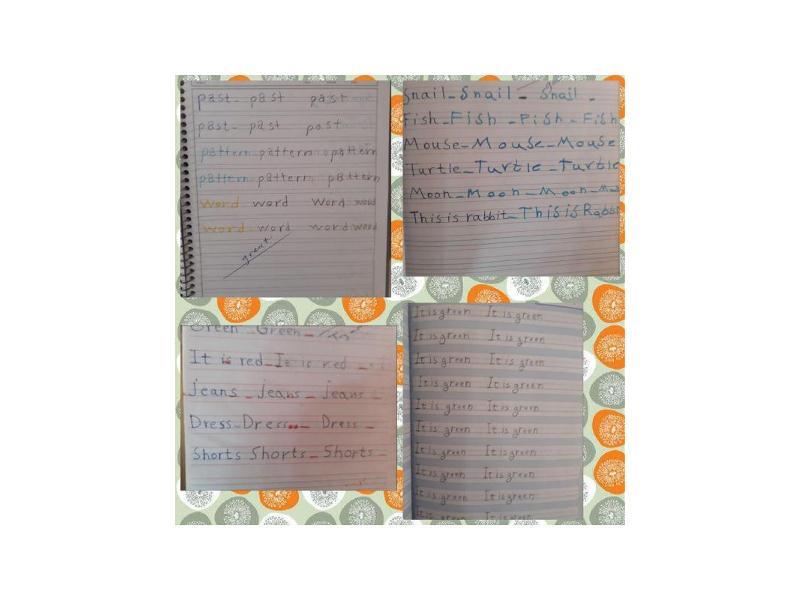 past - past past
past - past past
pattern pattern pattern
pattern pattern pattern
word word Word word
word word word word
great
Snail - Snail - Snail -
Fish - Fish - Fish - Fish
Mouse - Mouse - Mouse
Turtle - Turtle - Turtle
Moon - Moon - Moon -
This is rabbit - This is Rabbi
Green Green -
It is red - It is red -
jeans - jeans - jeans -
Dress - Dress - Dress -
Shorts Shorts - Shorts -
It is green It is green
It is green It is green
It is green It is green
It is green It is green
It is green It is green
It is green It is green
It is green It is green
It is green It is green
It is green It is green
It is green It is green